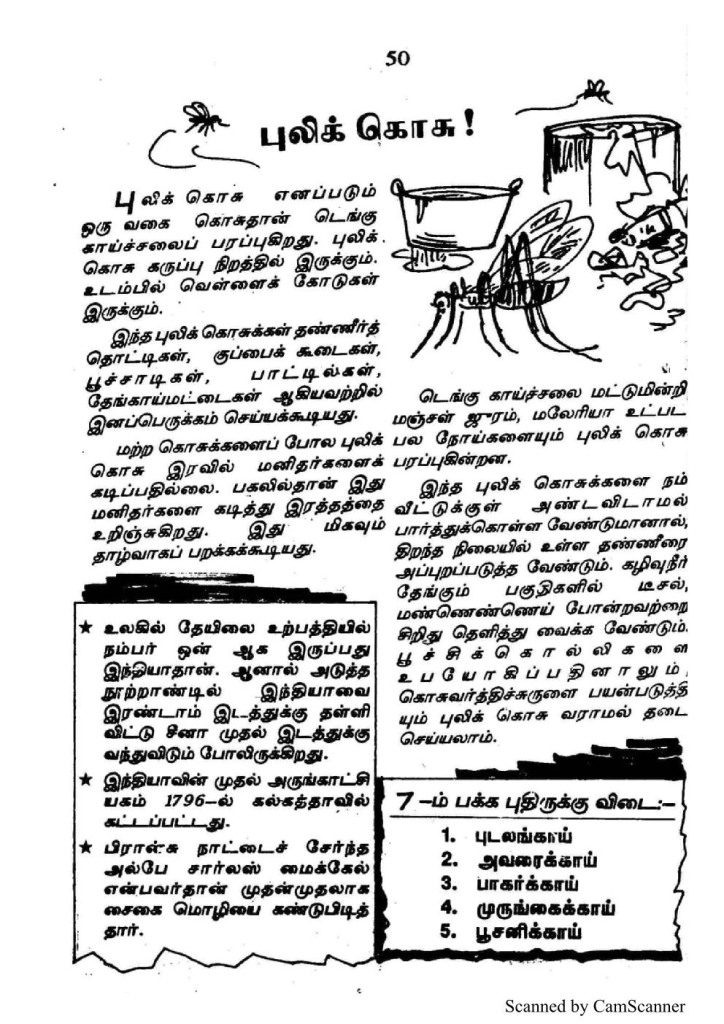 50
புலிக் கொசு!
புலிக் கொசு எனப்படும்
ஒரு வகை கொசுதான் டெங்கு
காய்ச்சலைப் பரப்புகிறது. புலிக்
கொசு கருப்பு நிறத்தில் இருக்கும்.
உடம்பில் வெள்ளைக் கோடுகள்
இருக்கும்.
இந்த புலிக் கொசுக்கள் தண்ணீர்த்
தொட்டிகள், குப்பைக் கூடைகள்,
பூச்சாடிகள், பாட்டில்கள்,
தேங்காய்மட்டைகள் ஆகியவற்றில்
இனப்பெருக்கம் செய்யக்கூடியது.
மற்ற கொசுக்களைப் போல புலிக்
கொசு இரவில் மனிதர்களைக்
கடிப்பதில்லை. பகலில்தான் இது
மனிதர்களை கடித்து இரத்தத்தை
உறிஞ்சுகிறது. இது மிகவும்
தாழ்வாகப் பறக்கக்கூடியது.
டெங்கு காய்ச்சலை மட்டுமின்றி
மஞ்சள் ஜுரம், மலேரியா உட்பட
பல நோய்களையும் புலிக் கொசு
பரப்புகின்றன.
இந்த புலிக் கொசுக்களை நம்
வீட்டுக்குள் அண்டவிடாமல்
பார்த்துக்கொள்ள வேண்டுமானால்,
திறந்த நிலையில் உள்ள தண்ணீரை
அப்புறப்படுத்த வேண்டும். கழிவுநீர்
தேங்கும் பகுதிகளில் டீசல்,
மண்ணெண்ணெய் போன்றவற்றை
சிறிது தெளித்து வைக்க வேண்டும்.
பூச்சிக்கொல்லிகளை
உபயோகிப்பதினாலும்,
கொசுவர்த்திச்சுருளை பயன்படுத்தி
யும் புலிக் கொசு வராமல் தடை
செய்யலாம்.
★ உலகில் தேயிலை உற்பத்தியில்
நம்பர் ஒன் ஆக இருப்பது
இந்தியாதான். ஆனால் அடுத்த
நூற்றாண்டில் இந்தியாவை
இரண்டாம் இடத்துக்கு தள்ளி
விட்டு சீனா முதல் இடத்துக்கு
வந்துவிடும் போலிருக்கிறது.
★ இந்தியாவின் முதல் அருங்காட்சி
யகம் 1796-ல் கல்கத்தாவில்
கட்டப்பட்டது.
★ பிரான்சு நாட்டைச் சேர்ந்த
அல்பே சார்லஸ் மைக்கேல்
என்பவர்தான் முதன்முதலாக
சைகை மொழியை கண்டுபிடித்
தார்.
7-ம் பக்க புதிருக்கு விடை:-
1. புடலங்காய்
2. அவரைக்காய்
3. பாகற்க்காய்
4. முருங்கைக்காய்
5. பூசனிக்காய்
Scanned by CamScanner